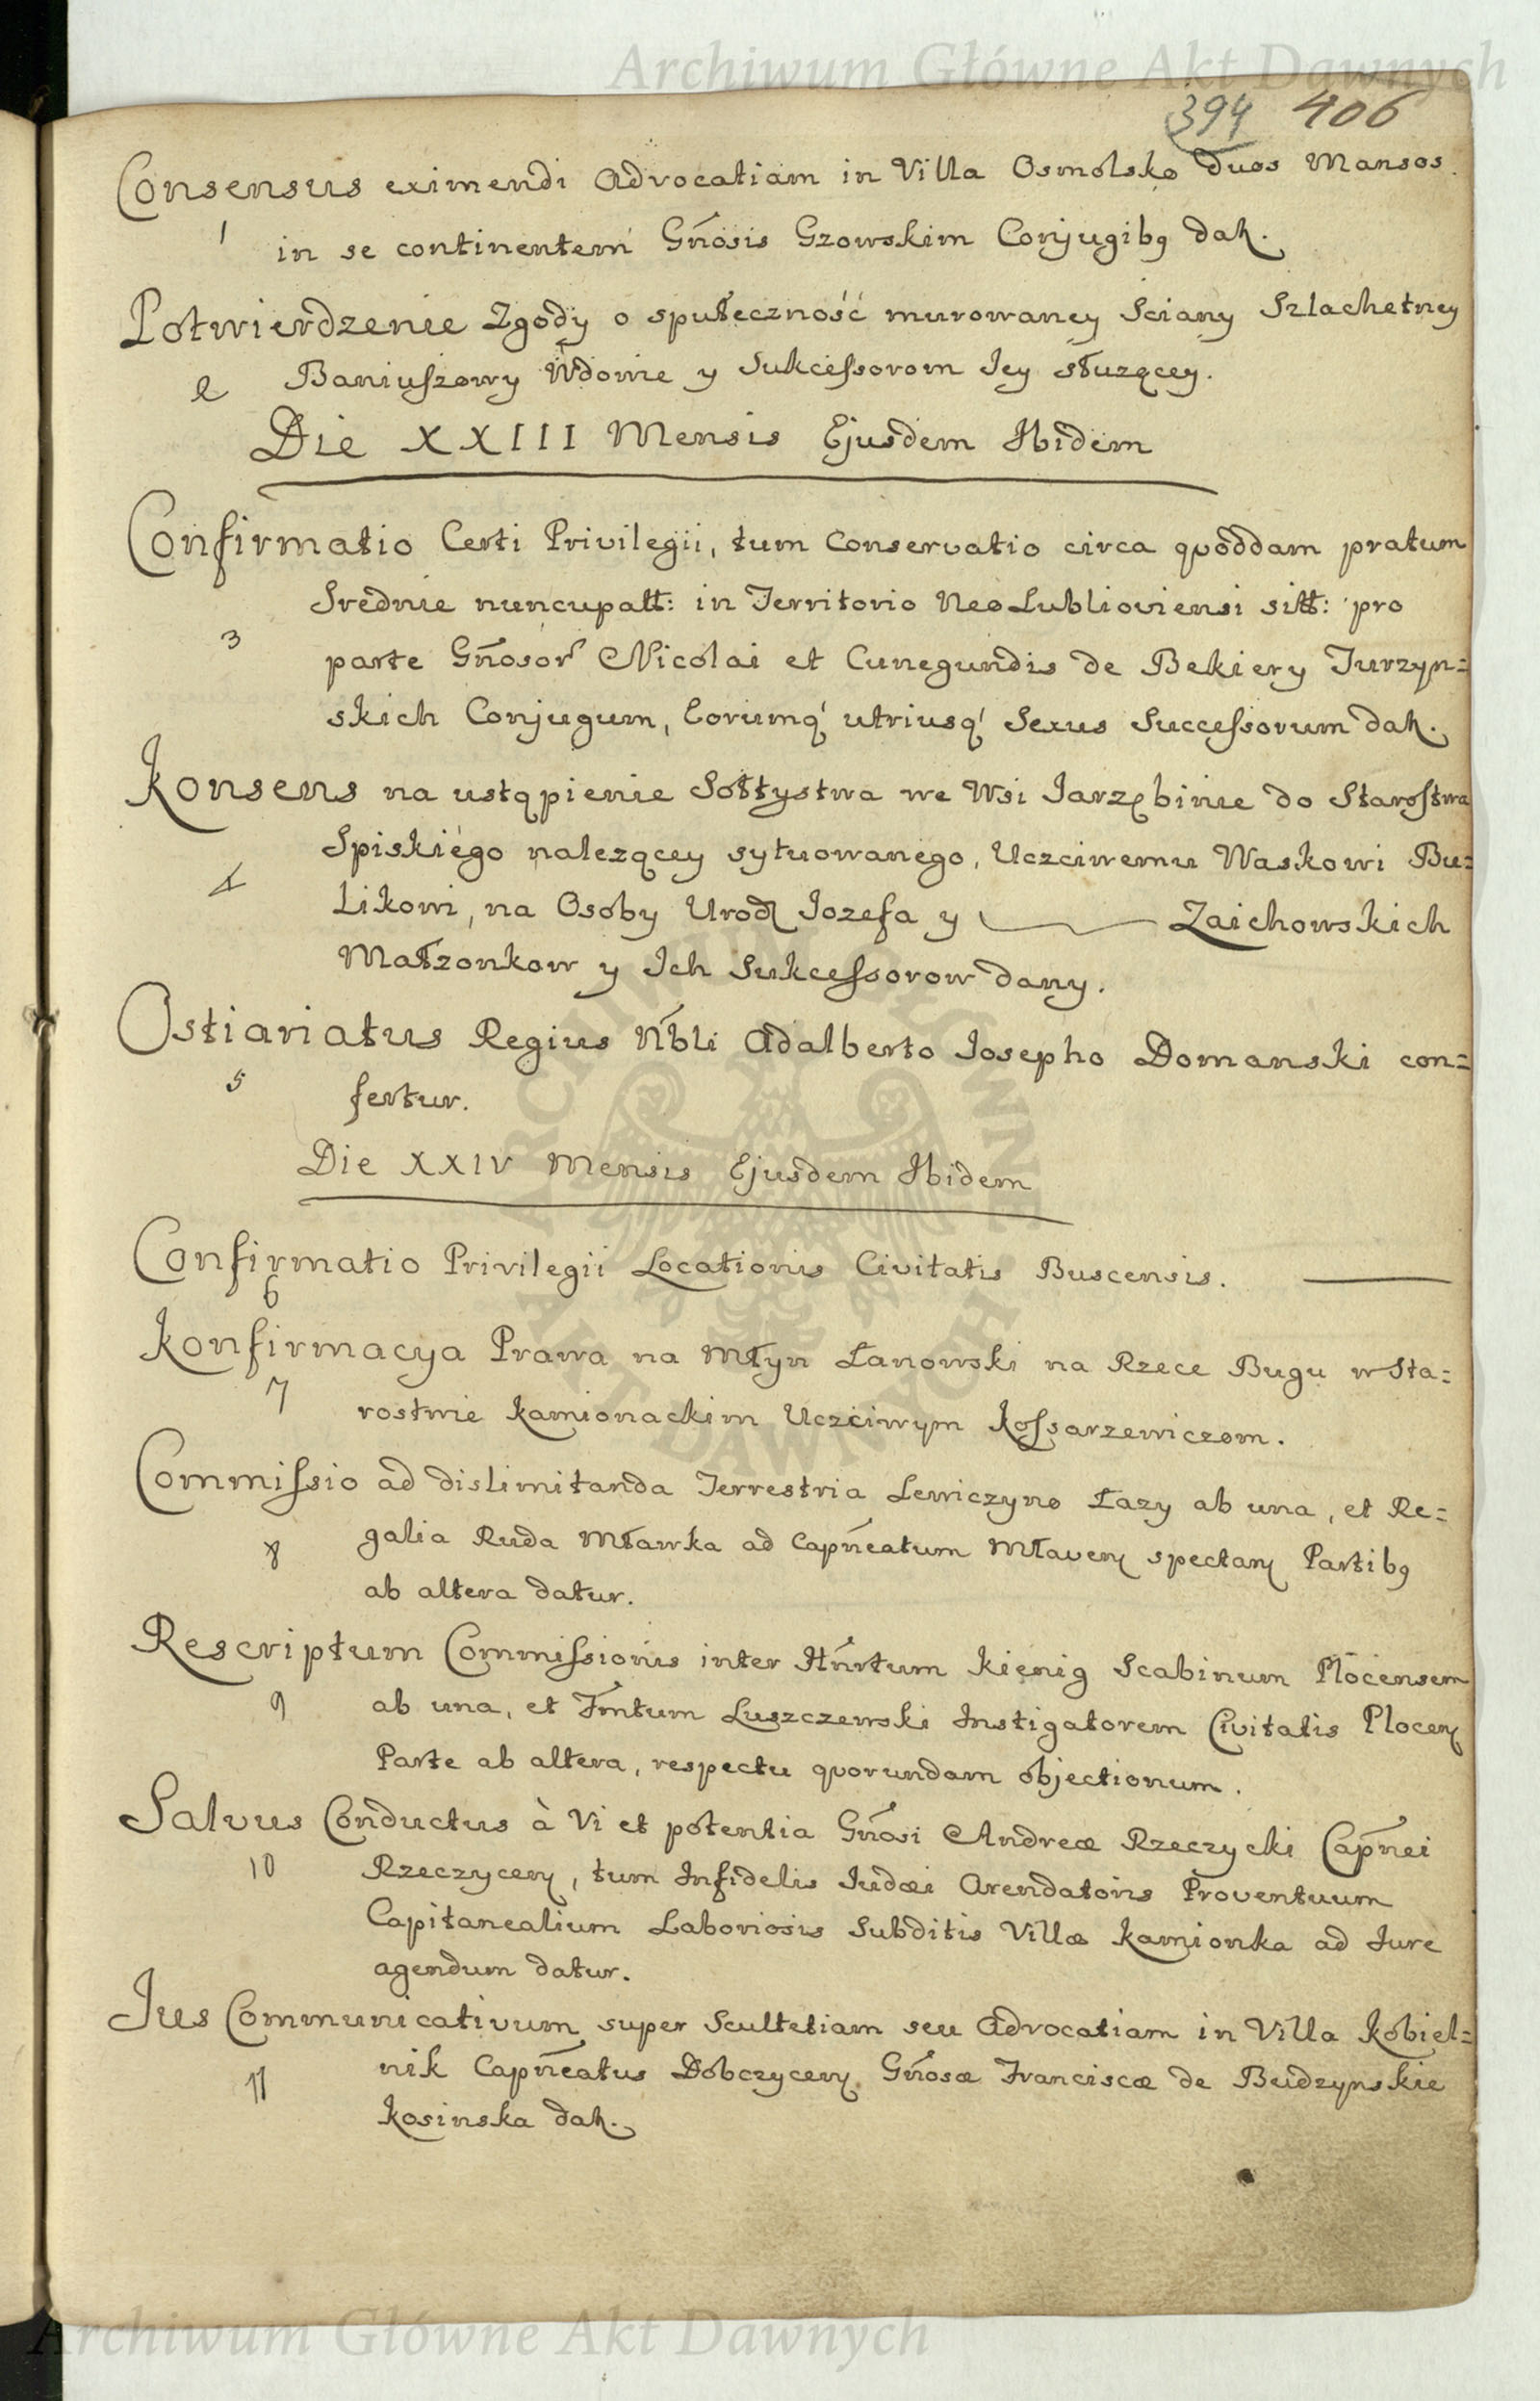 Archiwum Główne Akt Dawnych
394 406
Consensus eximendi Advocatiam in Villa Osmolsko duos Mansos
1 in se continentem Gn̄osis Gzowskim Conjugibꝯ dat.
Potwierdzenie Zgody o społeczność murowaney Sciany Szlachetney
2 Baniuszowy Wdowie y Sukcessorom Jey słuzącey.
Die XXIII Mensis Ejusdem Ibidem
Confirmatio Certi Privilegii, tum Conservatio circa quoddam pratum
Srednie nuncupatt: in Territorio NeoLublioviensi sitt: pro
3 parte Gn̄osor Nicolai et Cunegundis de Bekiery Jurzyn=
skich Conjugum, Eorumq́ utriusq́ Sexus Successorum dat.
Konsens na ustąpienie Sołtystwa we Wsi Jarzębinie do Starostwa
Spiskiego nalezącey sytuowanego, Uczciwemu Waskowi Bu=
4 likowi, na Osoby Urodz Jozefa y ——— Zaichowskich
Małzonkow y Ich Sukcessorow dany.
Ostiariatus Regius Nb̄li Adalberto Josepho Domanski con=
5 fertur.
Die XXIV Mensis Ejusdem Ibidem
Confirmatio Privilegii Locationis Civitatis Buscensis. ———
6
Konfirmacya Prawa na Młyn Łanowski na Rzece Bugu w Sta=
7 rostwie Kamionackim Uczciwym Kossarzewiczom.
Commissio ad dislimitanda Terrestria Lewiczyno Łazy ab una, et Re=
8 galia Ruda Mławka ad Capn̄eatum Młaven spectan Partibꝯ
ab altera datur.
Rescriptum Commissionis inter Hn̄rtum Kienig Scabinum Plocensem
9 ab una, et Fmtum Luszczewski Instigatorem Civitatis Plocen
Parte ab altera, respectu quorundam objectionum.
Salvus Conductus à Vi et potentia Gn̄osi Andreæ Rzeczycki Capn̄ei
10 Rzeczycen, tum Infidelis Judæi Arendatoris Proventuum
Capitanealium Laboriosis Subditis Villæ Kamionka ad Jure
agendum datur.
Jus Communicativum super Scultetiam seu Advocatiam in Villa Kobiel=
11 nik Capn̄eatus Dobczycen Gn̄osæ Franciscæ de Budzynskie
Kosinska dat.
ARCHIWUM GŁÓWNE AKT DAWNYCH
Archiwum Główne Akt Dawnych